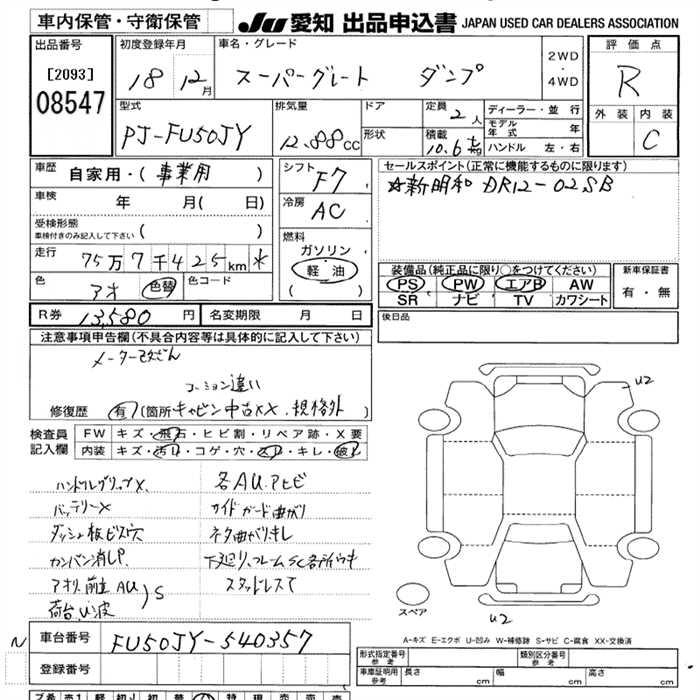 車内保管・守衛保管
JU 愛知 出品申込書 JAPAN USED CAR DEALERS ASSOCIATION
出品番号
[2093]
08547
初度登録年月
18 年 12 月
車名・グレード
スーパーグレート ダンプ
2WD
・
4WD
評価点
R
外装 内装
C
型式
PJ-FU50JY
排気量
12.88 cc
ドア
形状
定員
2人
積載
10.6
ディーラー・並行
モデル年式 年
ハンドル 左・右
車歴
自家用・(事業用 )
車検
年 月( 日)
受検形態
車検付きのみ記入して下さい ( )
走行
75万7千425km *
色
アオ 色替
色コード
シフト
F7
冷房
AC
燃料
ガソリン
軽油
( )
セールスポイント(正常に機能するものに限ります)
☆新明和 DR12-02SB
装備品(純正品に限り○をつけてください)
PS PW エアB AW
SR ナビ TV カワシート
新車保証書
有・無
R券 13,580 円
名変期限 月 日
後日品
注意事項申告欄(不具合内容等は具体的に記入して下さい)
コーション違い
修復歴 有 (箇所 キャビン中古XX、規格外
検査員記入欄
FW キズ・飛石・ヒビ割・リペア跡・X要
内装 キズ・汚れ・コゲ・穴・スレ・キレ・破れ
ハンドルグリップX、
バッテリーX
ダッシュ板ビス穴
カンバン消しP.
アオリ、前立AU
荷台、U波
)S
各AU.アセビ
サイドガード曲がり
ネタ曲がりキレ
下廻り、フレームSC各所ウキ
スタッドレスT
U2
スペア
U2
A-キズ E-エクボ U-凹み W-補修跡 S-サビ C-腐食 XX-交換済
N
車台番号 FU50JY-540357
登録番号
形式指定番号
参考
類別区分番号
参考
車庫証明用
参考
長さ cm 幅 cm 高さ cm